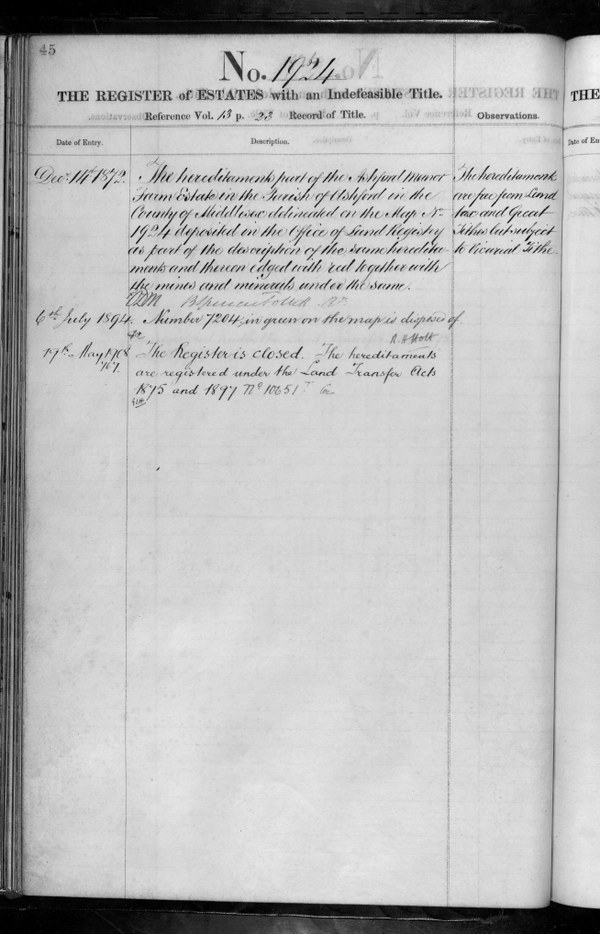 45
No. 1924
THE REGISTER of ESTATES with an Indefeasible Title.
Reference Vol. 13 p. 23 Record of Title.
Observations.
Date of Entry.
Description.
Decr. 14th 1872.
The hereditaments part of the Ashford Manor
Farm Estate in the Parish of Ashford in the
County of Middlesex delineated on the Map No
1924 deposited in the Office of Land Registry
as part of the description of the same heredita
ments and thereon edged with red together with
the mines and minerals under the same.
The hereditaments
are free from Land
tax and Great
Tithes but subject
to Vicarial Tithe.
6th July 1894.
Number 7204, in green on the map is disposed of.
R. H. Holt
19th May 1908
The Register is closed. The hereditaments
are registered under the Land Transfer Acts
1875 and 1897 No 10651
THE REGISTER
THE
Date of En